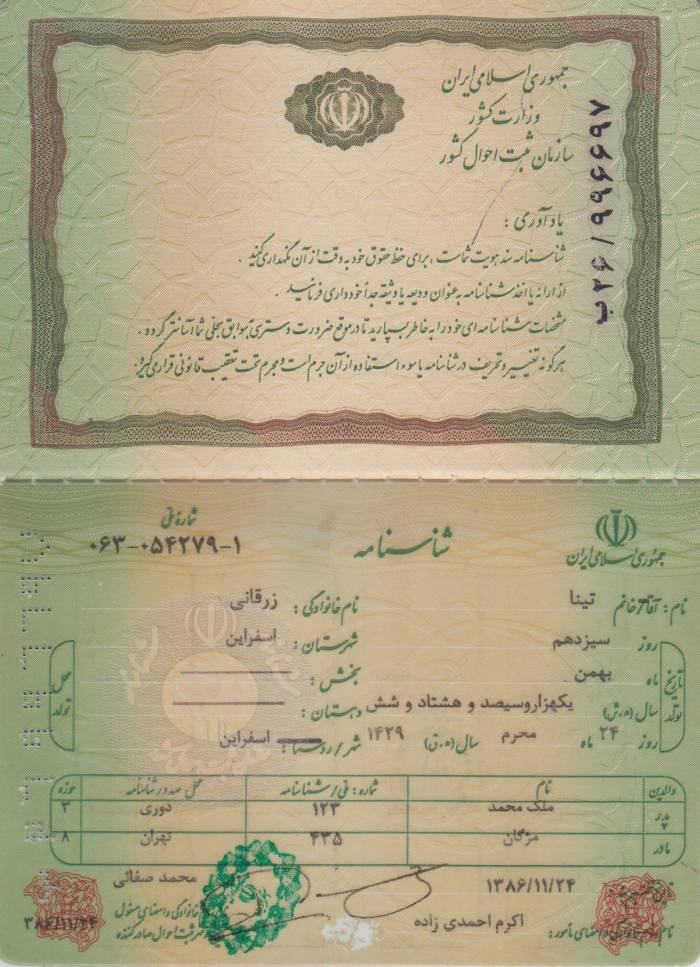 جمهوری اسلامی ایران
وزارت کشور
سازمان ثبت احوال کشور
ب۲۶/۹۹۶۶۹۷
یادآوری :
شناسنامه سند هویت شماست ، برای حفظ حقوق خود به دقت از آن نگهداری کنید .
از ارائه یا اخذ شناسنامه به عنوان ودیعه یا وثیقه جداً خودداری فرمائید .
مشخصات شناسنامه ای خود را به خاطر بسپارید تا در موقع ضرورت دسترسی به سوابق سجلی شما آسانتر گردد .
هرگونه تغییر و تحریف در شناسنامه یا سوء استفاده از آن جرم است و مجرم تحت تعقیب قانونی قرار می گیرد .
جمهوری اسلامی ایران
شناسنامه
شماره ملی
۰۶۳-۰۵۴۲۷۹-۱
نام : آقا/خانم تینا نام خانوادگی : زرقانی
تاریخ تولد
روز سیزدهم شهرستان : اسفراین
ماه بهمن بخش :
سال (ه.ش) یکهزاروسیصد و هشتاد و شش دهستان :
روز ۲۴ ماه محرم سال (ه.ق) ۱۴۲۹ شهر/روستا : اسفراین
محل تولد
والدین نام شماره : ملی/شناسنامه محل صدور شناسنامه حوزه
پدر ملک محمد ۱۲۳ دوری ۳
مادر مژگان ۴۳۵ تهران ۸
۱۳۸۶/۱۱/۲۴ محمد صفائی
اکرم احمدی زاده
نام خانوادگی و امضای مأمور :
نام خانوادگی و امضای مسئول
و مهر ثبت احوال صادر کننده
۱۳۸۶/۱۱/۲۴